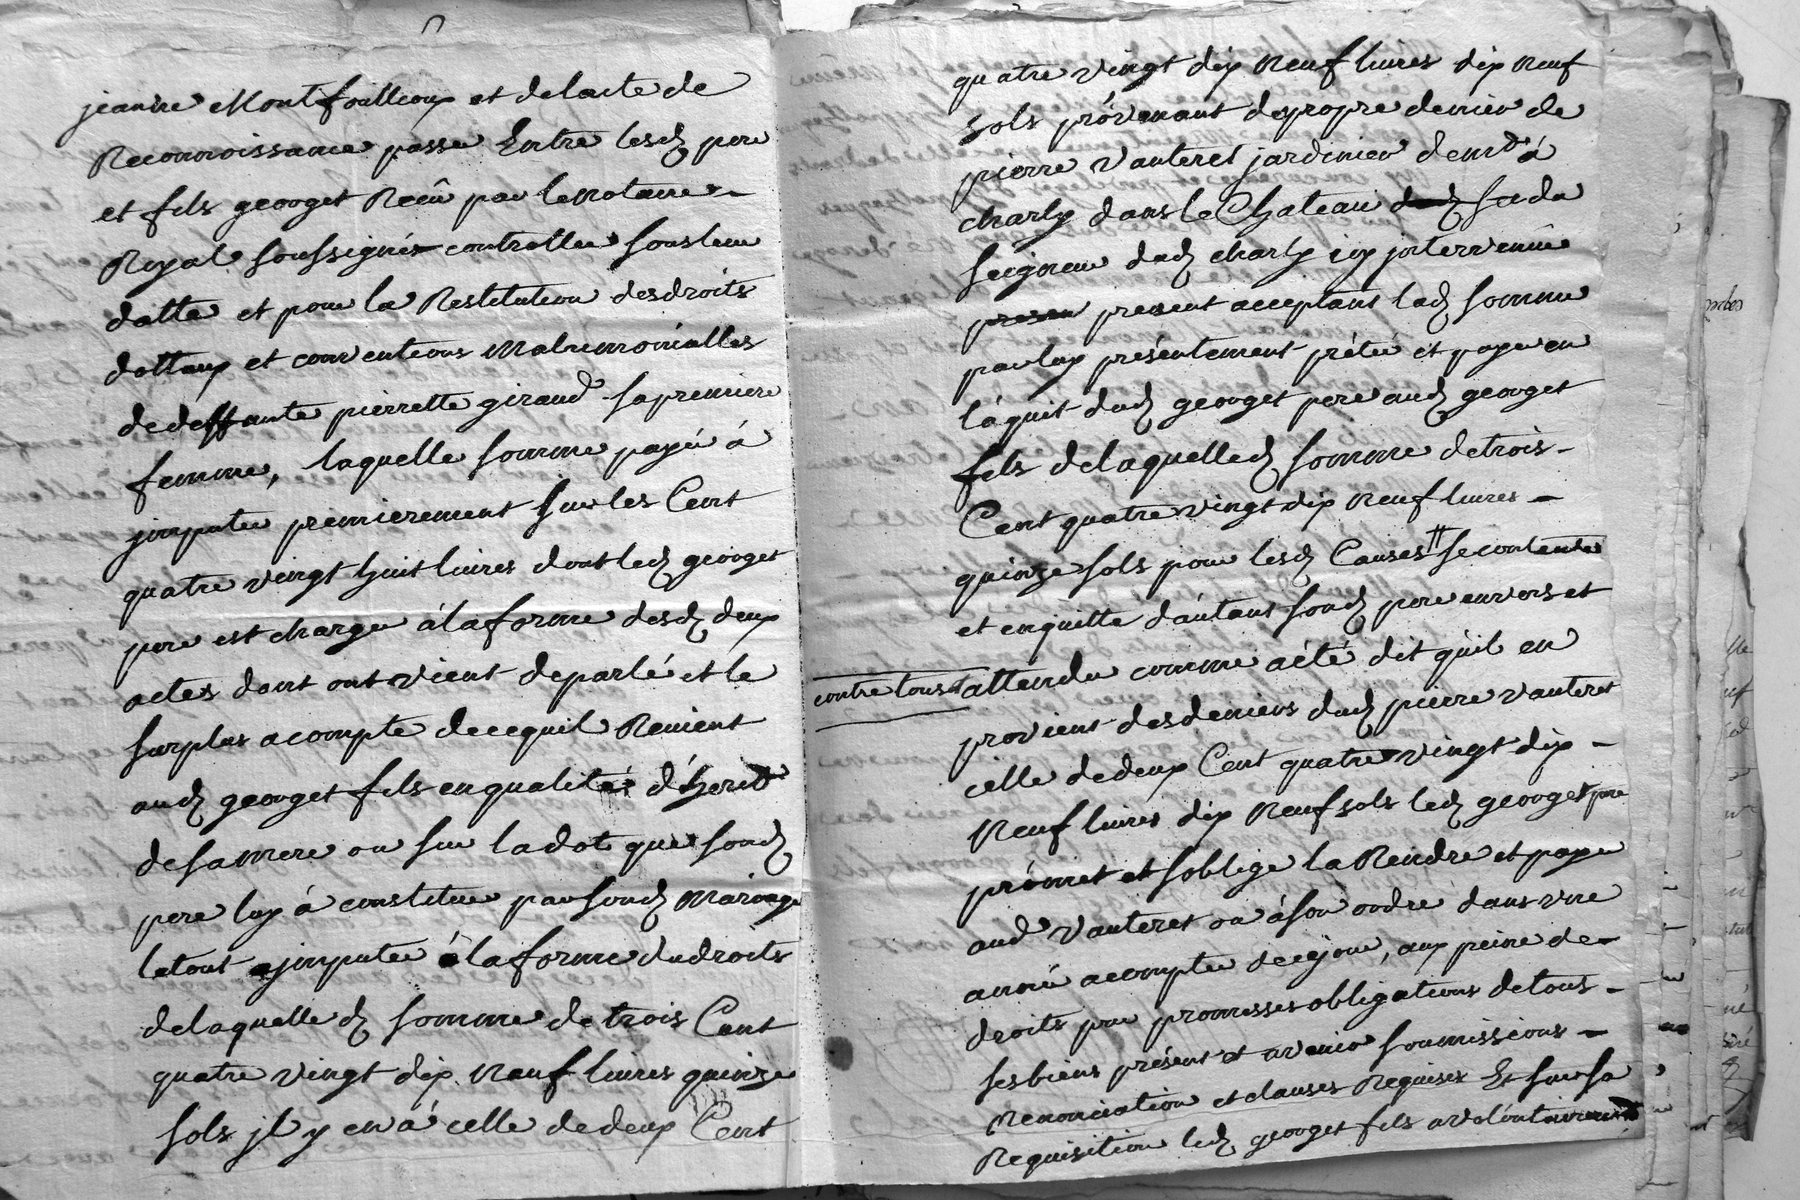 jeanne Montfoulloup et delacte de
Reconnoissance passé Entre lesd. pere
et fils georget Recû par le Notaire
Royal soussigné controllée sous leur
datte et pour la Restitution des droits
dottaux et conventions Matrimonialles
de deffunte pierrette giraud sa premiere
femme, laquelle somme payée à
jmputée premierement sur les Cent
quatre vingt huit livres dont led. georget
pere est chargé à la forme desd. deux
actes dont ont vient de parlé et le
surplus acompte de ce quil Revient
aud. georget fils en qualité d'heritr
de sa mere ou sur la dot que sond.
pere luy à constitué par sond. Mariage
le tout jmputée à la forme du droits
de laquelle d. somme de trois Cent
quatre vingt dix Neuf livres quinze
sols jl y en à celle de deux Cent
quatre vingt dix Neuf livres dix Neuf
sols provenant de propre denier de
pierre vauteret jardinier demt. à
charly dans le Chateau
seigneur dud. charly icy jntervenüe
present acceptant lad. somme
par luy présentement prétée et payé en
l'aquit dud. georget pere aud. georget
fils de laquelle d. somme de trois
Cent quatre vingt dix Neuf livres
quinze sols pour lesd. Causes # se contente
et en quitte d'autant sond. pere envers et
contre tous attendu comme à été dit qu'il en
provient des deniers dud. pierre vauteret
celle de deux Cent quatre vingt dix
Neuf livres dix Neuf sols led. georget pere
promet et soblige la Rendre et paye
aud. vauteret ou à son ordre dans une
année acompter de ce jour, aux peine de
droits par promesses obligations de tous
ses biens présent et avenir soumissions
Renonciation et clauses Requises Et sur sa
Requisition led. georget fils a volontairement